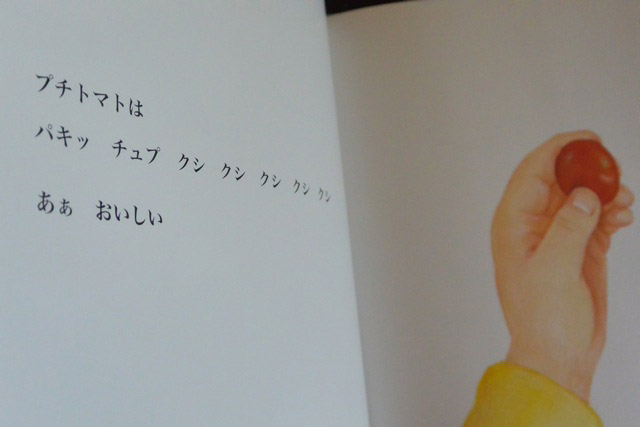 プチトマトは
パキッ　チュプ　クシ　クシ　クシ　クシ　クシ
あぁ　おいしい